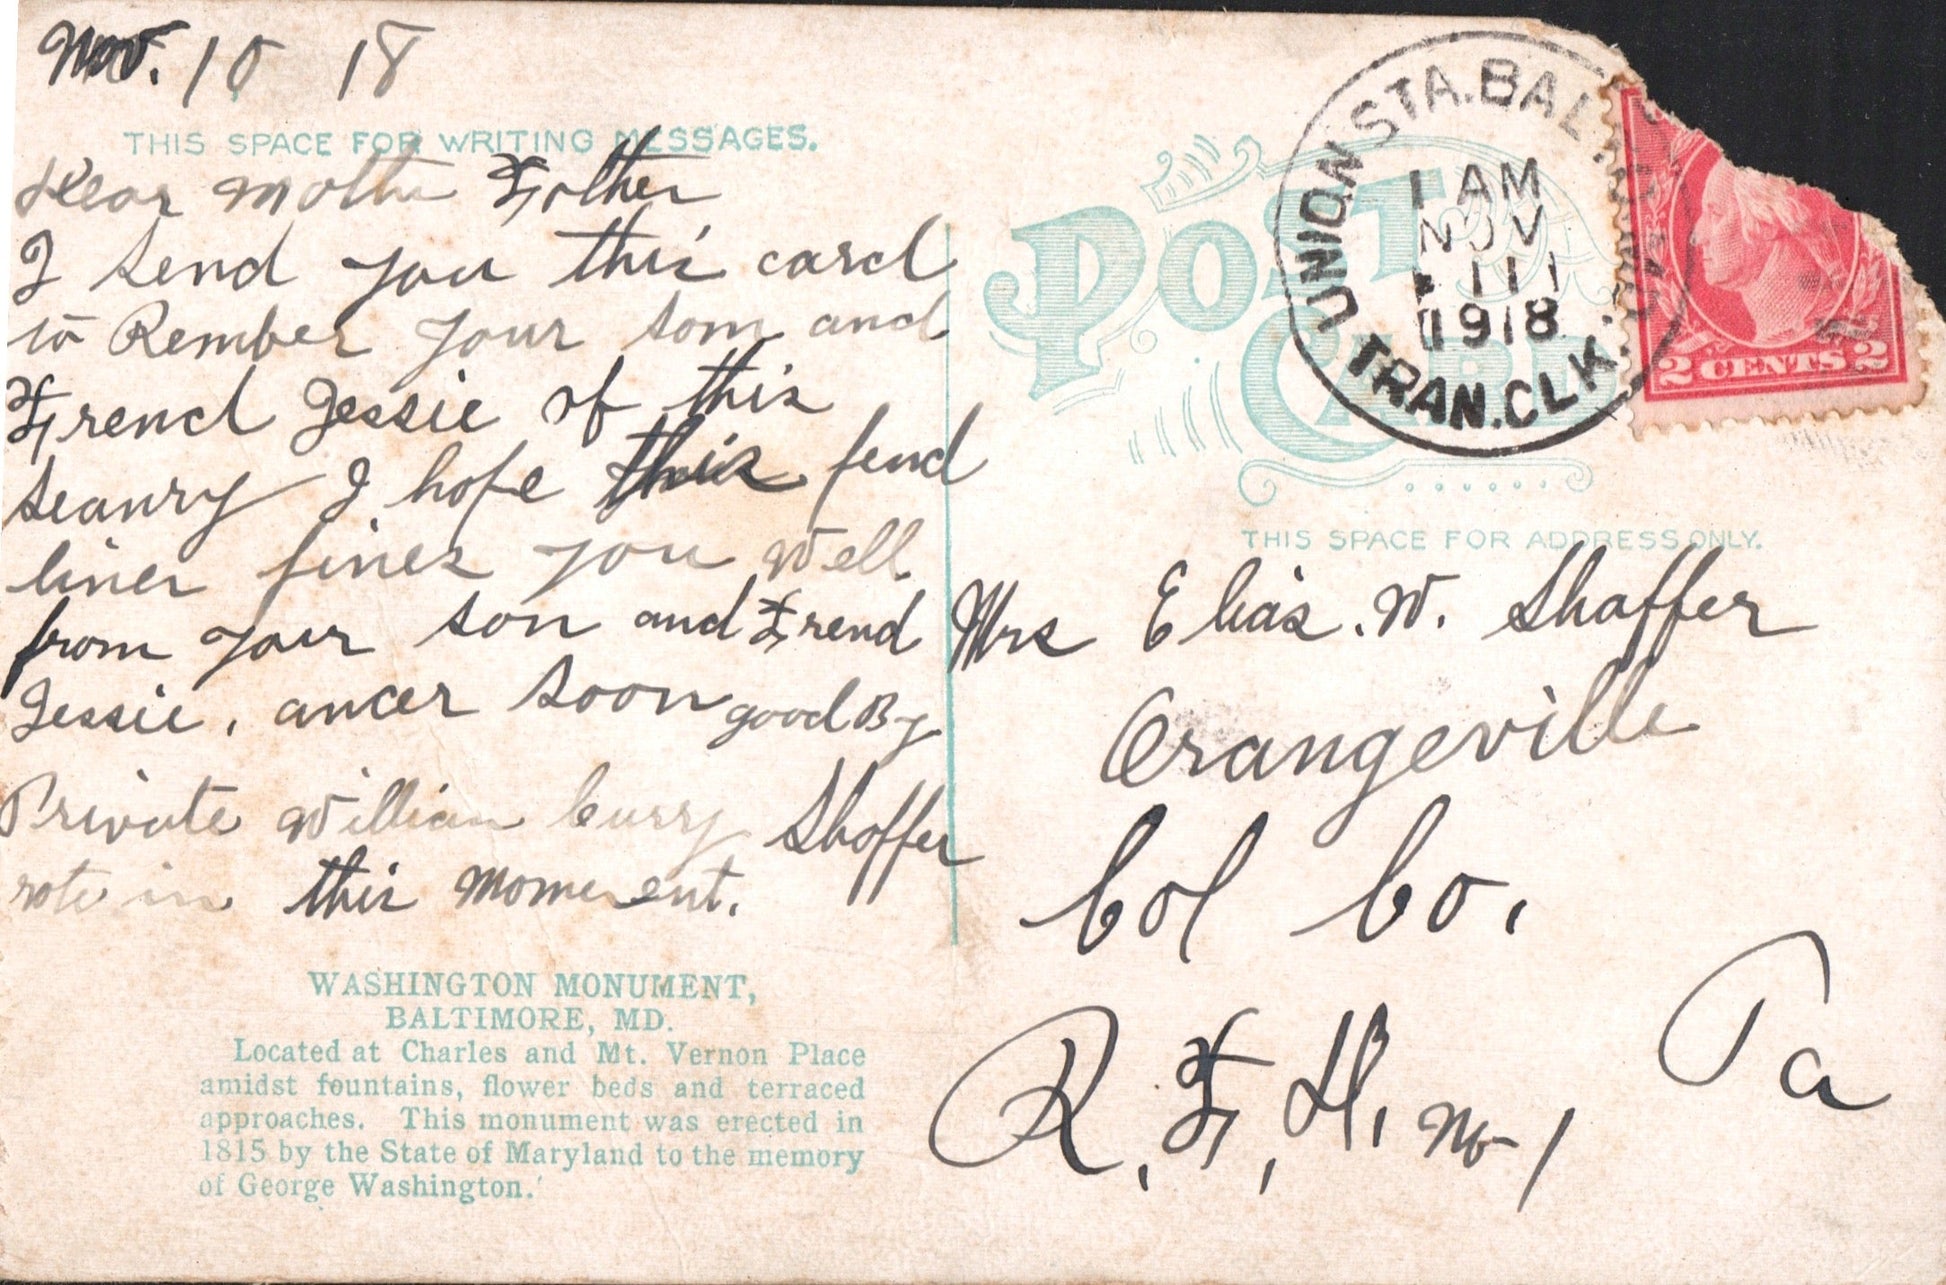 Nov. 10 18
THIS SPACE FOR WRITING MESSAGES.
Dear Mother Father
I send you this card
to Rember your som and
Frend Jessie of this
seanry I hope this fend
liner fines you well
from your son and Frend
Jessie. ancer soon good By
Private William Curry Shoffer
rote in this moment.
WASHINGTON MONUMENT,
BALTIMORE, MD.
Located at Charles and Mt. Vernon Place
amidst fountains, flower beds and terraced
approaches. This monument was erected in
1815 by the State of Maryland to the memory
of George Washington.
POST CARD
UNION STA. BAL
1 AM
NOV
11
1918
TRAN. CLK.
2 CENTS 2
THIS SPACE FOR ADDRESS ONLY.
Mrs Elias. W. Shaffer
Orangeville
Col Co.
Pa
R. F, D, No 1